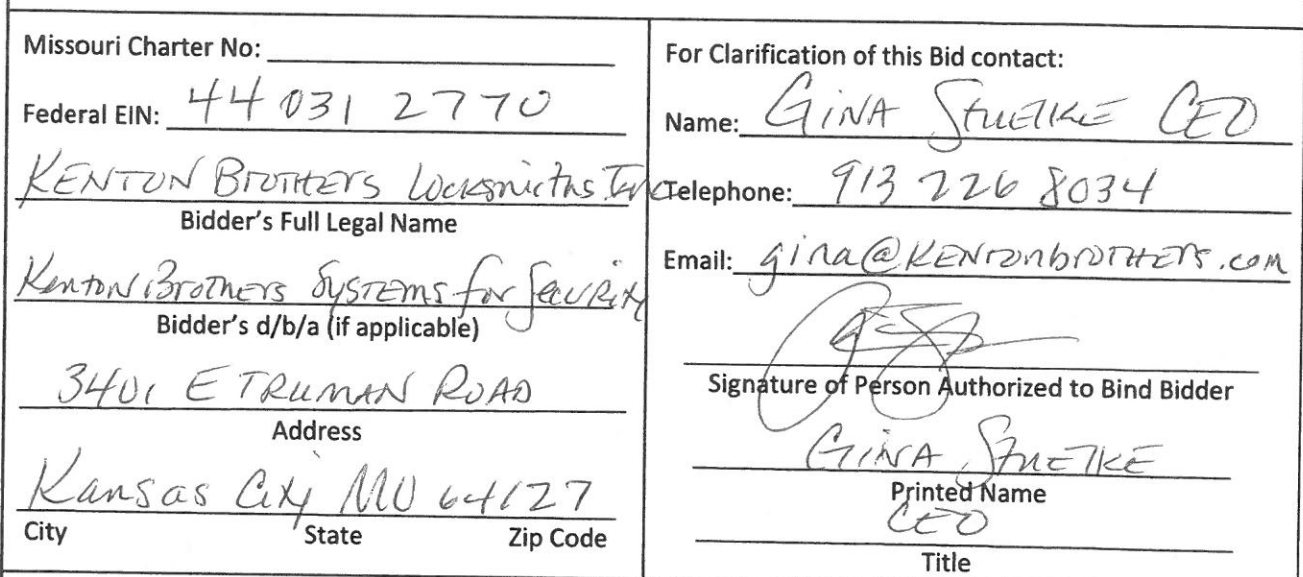 Missouri Charter No:
Federal EIN: 44 031 2770
KENTON BROTHERS Locksmiths Inc
Bidder's Full Legal Name
Kenton Brothers Systems for Security
Bidder's d/b/a (if applicable)
3401 E TRUMAN ROAD
Address
Kansas City MO 64127
City State Zip Code
For Clarification of this Bid contact:
Name: GINA STUELKE CEO
Telephone: 913 226 8034
Email: gina@KENTONbrothers.com
Signature of Person Authorized to Bind Bidder
GINA STUELKE
Printed Name
CEO
Title